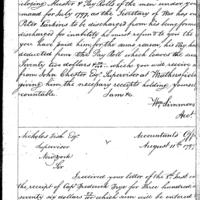 closing Muster & Pay Rolls of the men under your com-
mand for July 1797. as the Secretary of War has or
Peter Perkins to be discharged from his being former
discharged for inability he must refund to you the
you have paid him for the same reason, his Pay has
deducted from this Pay Roll which leaves the amt
Seventy two dollars which you will receive a
from John Chester Esqr Supervisor at Wethersfield
giving him the necessary receipts holding yoursel
accountable.
I am &c
Wm Simmons
Acct.
Nicholas Fish Esqr
Supervisor
New York
Sir
Accountants Off
August 11th 1797
I received your letter of the 8th Inst en
the receipt of Capt Frederick Frye for three hundred
twenty six dollars two which sum will be entered